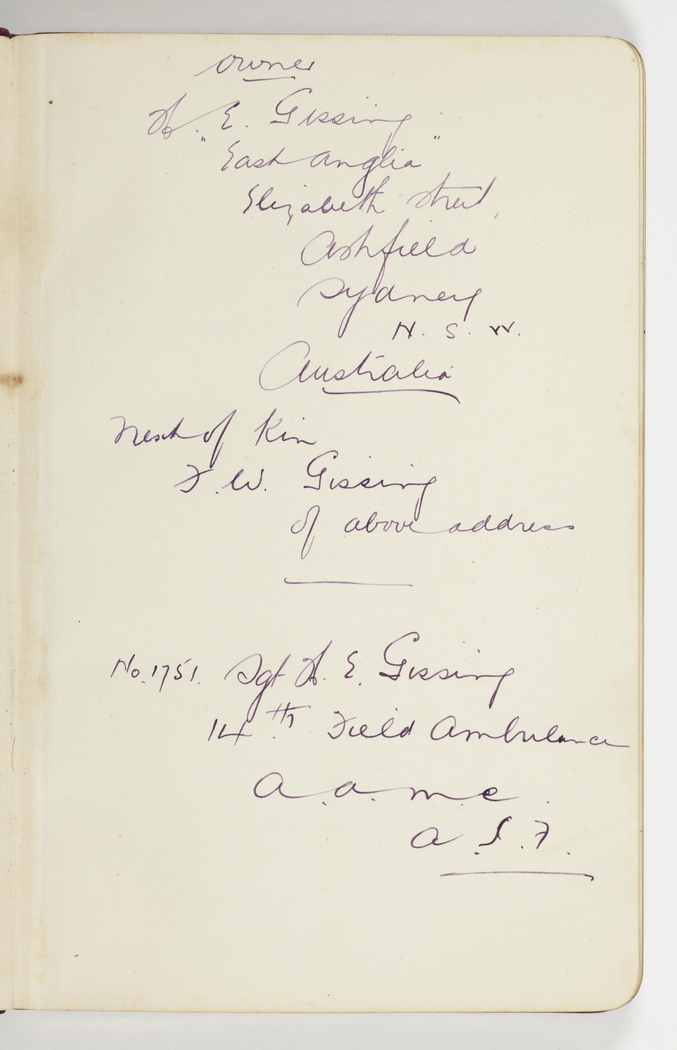 owner
H. E. Gissing
"East Anglia"
Elizabeth Street,
Ashfield
Sydney
N. S. W.
Australia
Next of Kin
F. W. Gissing
of above address
No. 1751. Sgt H. E. Gissing
14th Field Ambulance
A. A. M. C.
A. I. F.